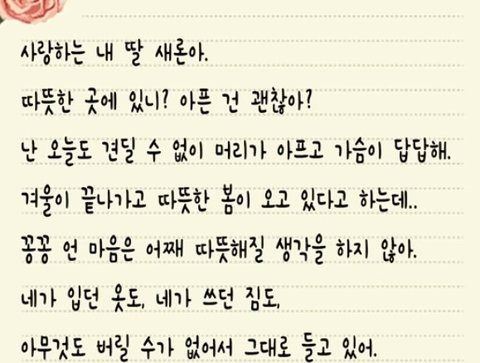 사랑하는 내 딸 새론아.
따뜻한 곳에 있니? 아픈 건 괜찮아?
난 오늘도 견딜 수 없이 머리가 아프고 가슴이 답답해.
겨울이 끝나가고 따뜻한 봄이 오고 있다고 하는데..
꽁꽁 언 마음은 어째 따뜻해질 생각을 하지 않아.
네가 입던 옷도, 네가 쓰던 짐도,
아무것도 버릴 수가 없어서 그대로 들고 있어.